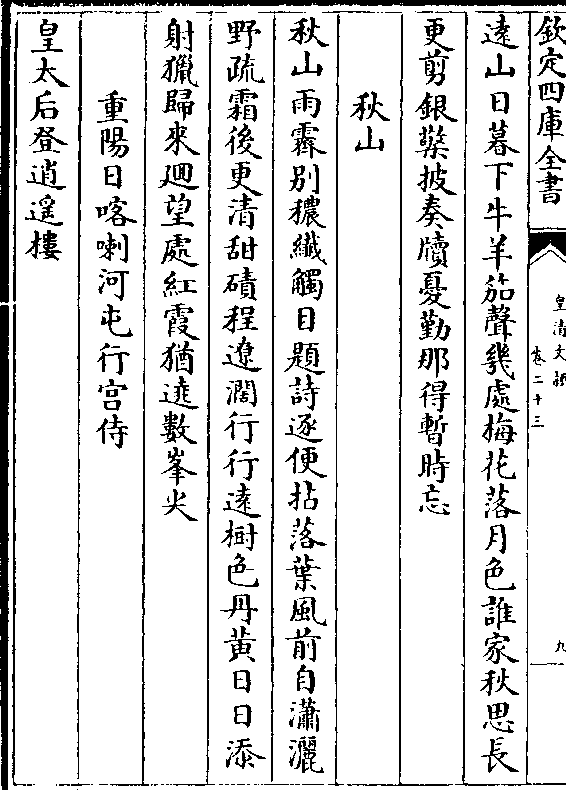 欽定四庫全書
皇清文穎
卷二十三
九
遠山日暮下牛羊笳聲幾處梅花落月色誰家秋思長
更剪銀檠披奏牘憂勤那得暫時忘
秋山
秋山雨霽别穠纖觸目題詩逐便拈落葉風前自瀟灑
野疏霜後更清甜磧程遼濶行行遠樹色丹黄日日添
射獵歸來廻望處紅霞猶遶數峯尖
重陽日喀喇河屯行宫侍
皇太后登逍遥樓